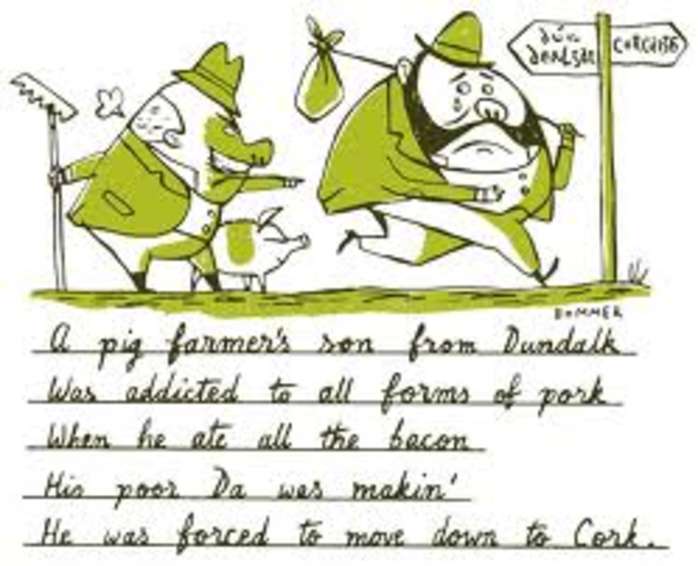 dún
dealgan
corcaigh
BOMMER
A pig farmer's son from Dundalk
Was addicted to all forms of pork
When he ate all the bacon
His poor Da was makin'
He was forced to move down to Cork.